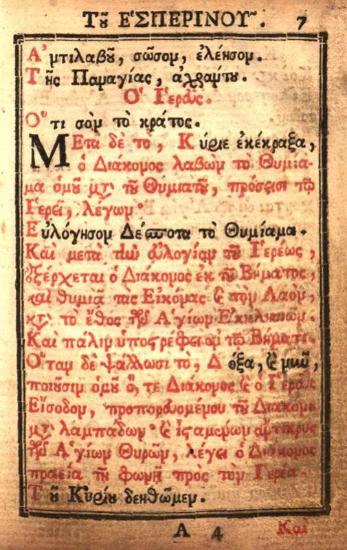 Τοῦ ἙΣΠΕΡΙΝΟΥ͂. 7
Ἀντιλαβοῦ, σῶσον, ἐλέησον.
Τῆς Παναγίας, ἀχράντου.
Ὁ Ἱερεύς.
Ὅτι σὸν τὸ κράτος.
Μετὰ δὲ τὸ, Κύριε ἐκέκραξα,
ὁ Διάκονος λαβὼν τὸ Θυμία-
μα ὁμοῦ μετὰ τοῦ Θυμιατοῦ, πρόσεισι τῷ
Ἱερεῖ, λέγων
Εὐλόγησον Δέσποτα τὸ Θυμίαμα.
Καὶ μετὰ τὴν εὐλογίαν τοῦ Ἱερέως,
ἐξέρχεται ὁ Διάκονος ἐκ τοῦ Βήματος,
καὶ θυμιᾷ τὰς Εἰκόνας καὶ τὸν Λαὸν,
κατὰ τὸ ἔθος τῶν Ἁγίων Ἐκκλησιῶν.
Καὶ πάλιν ὑποστρέφει τῷ Βήματι.
Ὅταν δὲ ψάλλωσι τὸ, Δόξα, καὶ νῦν,
ποιοῦσιν ὁμοῦ ὅ, τε Διάκονος καὶ ὁ Ἱερεὺς
Εἴσοδον, προπορευομένου τοῦ Διακόνου
μετὰ λαμπάδων καὶ ἱσταμένων ἀντικρυς
τῶν Ἁγίων Θυρῶν, λέγει ὁ Διάκονος
πραείᾳ τῇ φωνῇ πρὸς τὸν Ἱερέα.
Τοῦ Κυρίου δεηθῶμεν.
Α 4 Και